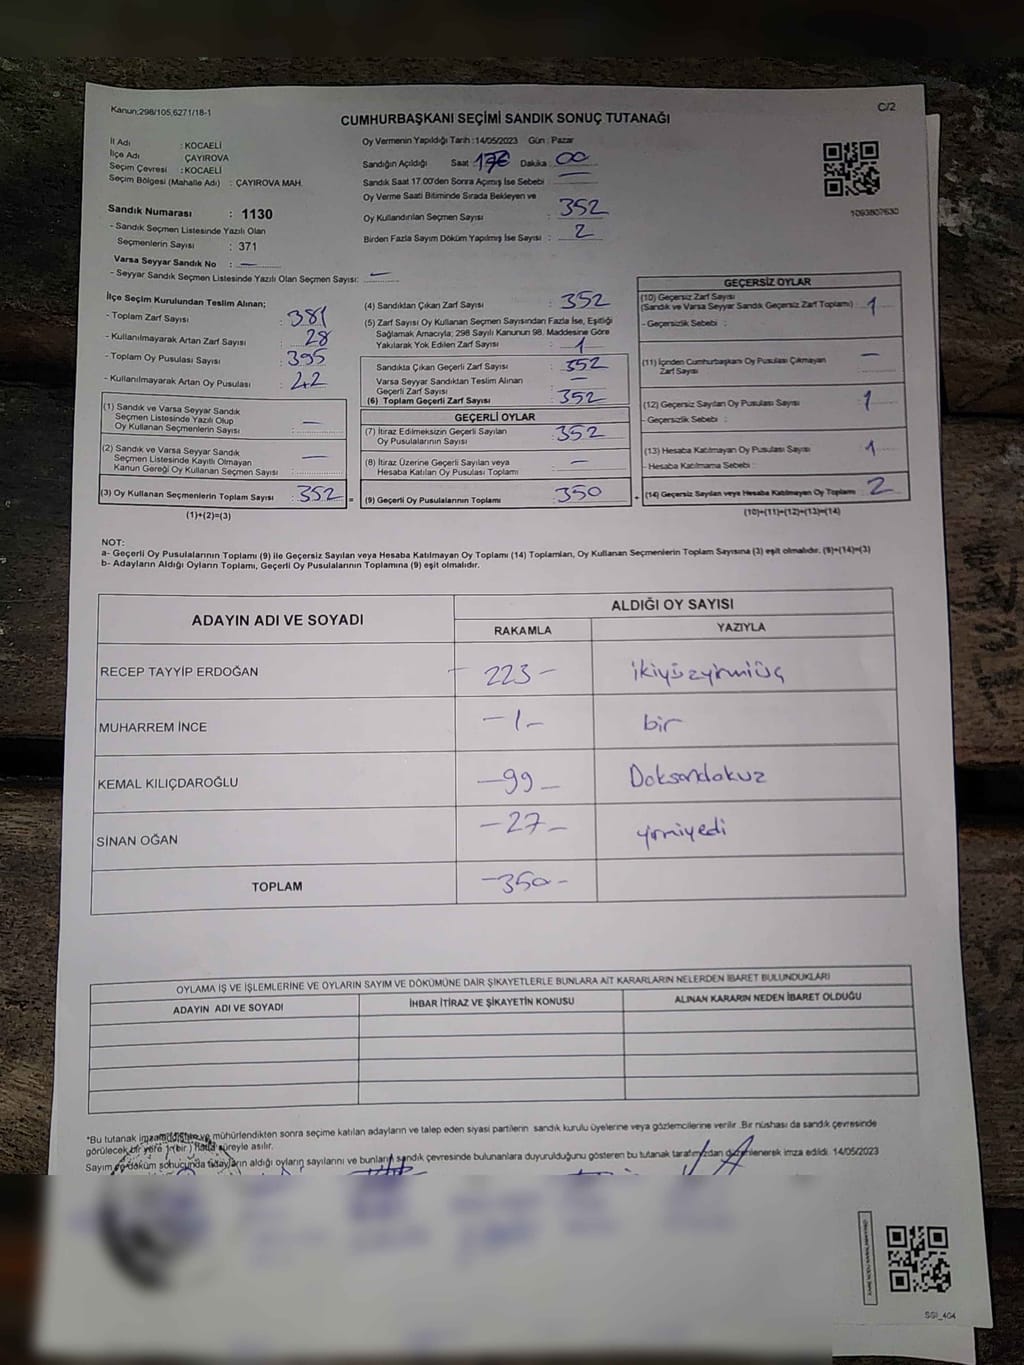 Kanun:298/105,6271/18-1
C/2
CUMHURBAŞKANI SEÇİMİ SANDIK SONUÇ TUTANAĞI
İl Adı : KOCAELİ
İlçe Adı : ÇAYIROVA
Seçim Çevresi : KOCAELİ
Seçim Bölgesi (Mahalle Adı) : ÇAYIROVA MAH.
Sandık Numarası : 1130
- Sandık Seçmen Listesinde Yazılı Olan
Seçmenlerin Sayısı : 371
Varsa Seyyar Sandık No : —
- Seyyar Sandık Seçmen Listesinde Yazılı Olan Seçmen Sayısı: —
Oy Vermenin Yapıldığı Tarih :14/05/2023 Gün : Pazar
Sandığın Açıldığı Saat Dakika : 00
Sandık Saat 17.00'den Sonra Açımış İse Sebebi :
Oy Verme Saati Bitiminde Sırada Bekleyen ve
Oy Kullandırılan Seçmen Sayısı : 352
Birden Fazla Sayım Döküm Yapılmış İse Sayısı : 2
1093807630
İlçe Seçim Kurulundan Teslim Alınan;
- Toplam Zarf Sayısı : 381
- Kullanılmayarak Artan Zarf Sayısı : 28
- Toplam Oy Pusulası Sayısı : 395
- Kullanılmayarak Artan Oy Pusulası : 42
(1) Sandık ve Varsa Seyyar Sandık
Seçmen Listesinde Yazılı Olup
Oy Kullanan Seçmenlerin Sayısı : —
(2) Sandık ve Varsa Seyyar Sandık
Seçmen Listesinde Kayıtlı Olmayan
Kanun Gereği Oy Kullanan Seçmen Sayısı : —
(3) Oy Kullanan Seçmenlerin Toplam Sayısı : 352 =
(1)+(2)=(3)
(4) Sandıktan Çıkan Zarf Sayısı : 352
(5) Zarf Sayısı Oy Kullanan Seçmen Sayısından Fazla İse, Eşitliği
Sağlamak Amacıyla; 298 Sayılı Kanunun 98. Maddesine Göre
Yakılarak Yok Edilen Zarf Sayısı : 1
Sandıkta Çıkan Geçerli Zarf Sayısı : 352
Varsa Seyyar Sandıktan Teslim Alınan
Geçerli Zarf Sayısı : —
(6) Toplam Geçerli Zarf Sayısı : 352
GEÇERLİ OYLAR
(7) İtiraz Edilmeksizin Geçerli Sayılan
Oy Pusulalarının Sayısı : 352
(8) İtiraz Üzerine Geçerli Sayılan veya
Hesaba Katılan Oy Pusulası Toplamı : —
(9) Geçerli Oy Pusulalarının Toplamı : 350 +
GEÇERSİZ OYLAR
(10) Geçersiz Zarf Sayısı
(Sandık ve Varsa Seyyar Sandık Geçersiz Zarf Toplamı) : 1
- Geçersizlik Sebebi :
(11) İçinden Cumhurbaşkanı Oy Pusulası Çıkmayan
Zarf Sayısı : —
(12) Geçersiz Sayılan Oy Pusulası Sayısı : 1
- Geçersizlik Sebebi :
(13) Hesaba Katılmayan Oy Pusulası Sayısı : 1
- Hesaba Katılmama Sebebi :
(14) Geçersiz Sayılan veya Hesaba Katılmayan Oy Toplamı : 2
(10)+(11)+(12)+(13)=(14)
NOT:
a- Geçerli Oy Pusulalarının Toplamı (9) ile Geçersiz Sayılan veya Hesaba Katılmayan Oy Toplamı (14) Toplamları, Oy Kullanan Seçmenlerin Toplam Sayısına (3) eşit olmalıdır. (9)+(14)=(3)
b- Adayların Aldığı Oyların Toplamı, Geçerli Oy Pusulalarının Toplamına (9) eşit olmalıdır.
ADAYIN ADI VE SOYADI
ALDIĞI OY SAYISI
RAKAMLA YAZIYLA
RECEP TAYYİP ERDOĞAN - 223 - ikiyüzyirmiüç
MUHARREM İNCE - 1 - bir
KEMAL KILIÇDAROĞLU - 99 - Doksandokuz
SİNAN OĞAN - 27 - yirmiyedi
TOPLAM - 350 -
OYLAMA İŞ VE İŞLEMLERİNE VE OYLARIN SAYIM VE DÖKÜMÜNE DAİR ŞİKAYETLERLE BUNLARA AİT KARARLARIN NELERDEN İBARET BULUNDUKLARI
ADAYIN ADI VE SOYADI İHBAR İTİRAZ VE ŞİKAYETİN KONUSU ALINAN KARARIN NEDEN İBARET OLDUĞU
*Bu tutanak imzalandıktan ve mühürlendikten sonra seçime katılan adayların ve talep eden siyasi partilerin sandık kurulu üyelerine veya gözlemcilerine verilir .Bir nüshası da sandık çevresinde
görülecek bir yere 1 (bir) hafta süreyle asılır.
Sayım ve döküm sonucunda adayların aldığı oyların sayılarını ve bunların sandık çevresinde bulunanlara duyurulduğunu gösteren bu tutanak tarafımızdan düzenlenerek imza edildi. 14/05/2023
SSI_404